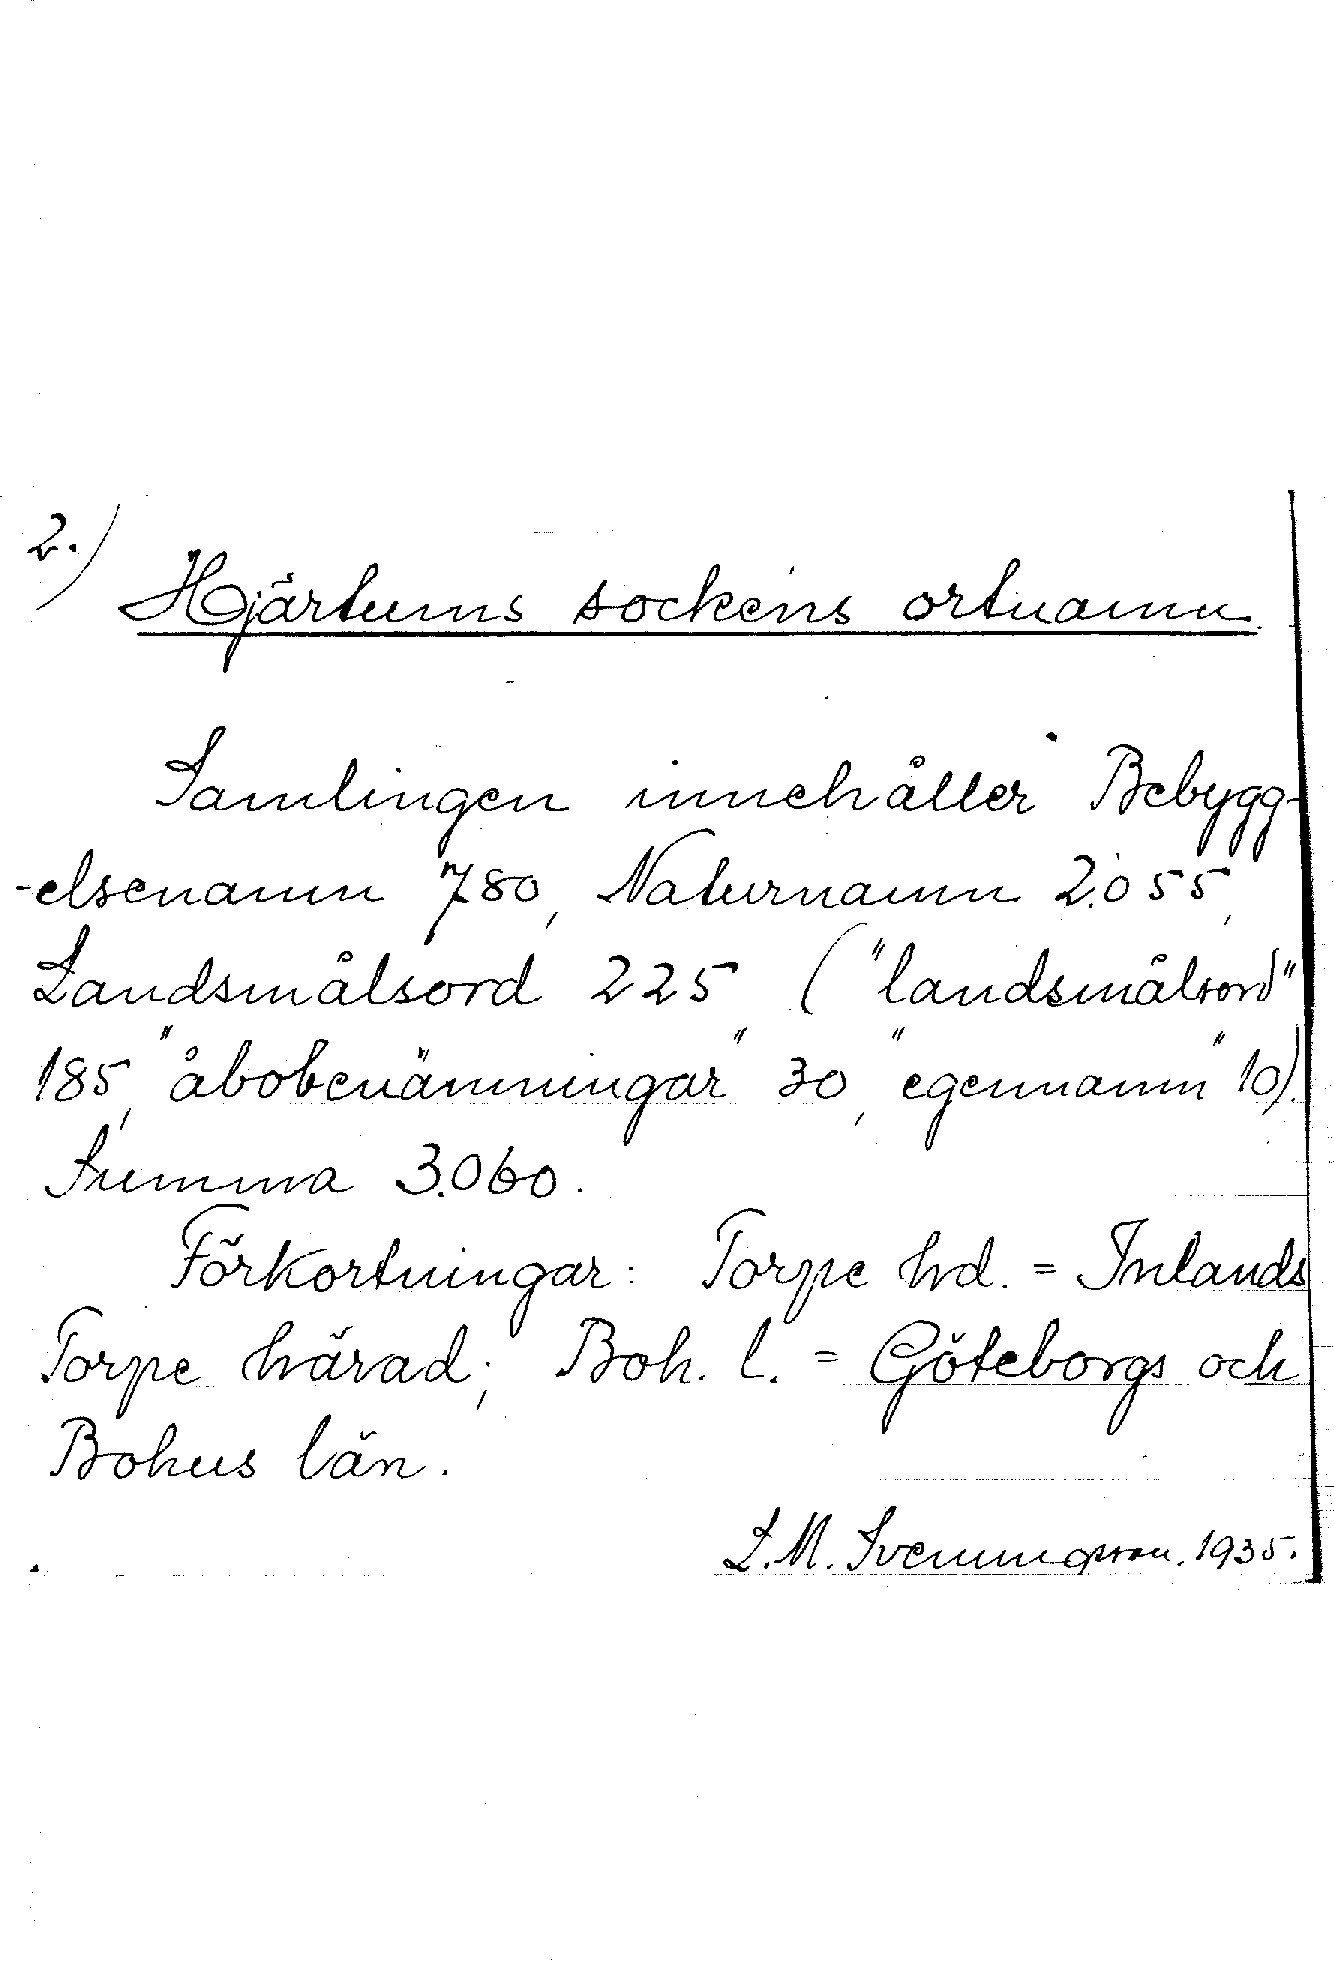 2.)
Hjärtums sockens ortnamn.
Samlingen innehåller Bebygg-
-elsenamn 780, Naturnamn 2.055,
Landsmålsord 225 ("landsmålsord"
185, "åbobenämningar" 30, "egennamn" 10).
Summa 3.060.
Förkortningar: Torpe hd. = Inlands
Torpe härad; Boh. l. = Göteborgs och
Bohus län.
L.M. Svenungsson. 1935.